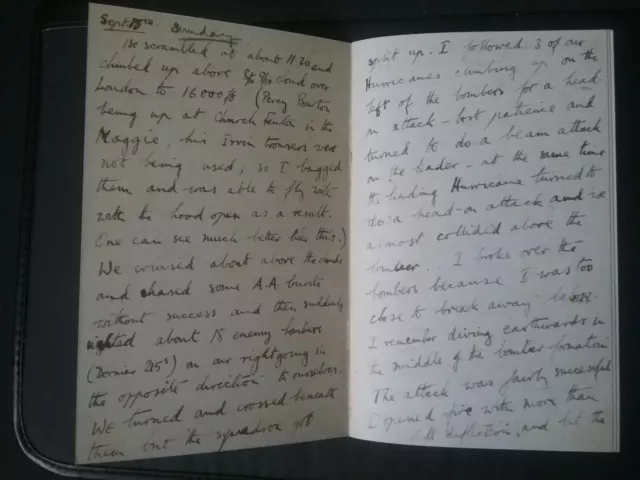 Sept. 15th. Sunday
We scrambled at about 11.30 and
climbed up above 8/10 cloud over
London to 16000 ft (Percy Burton
being up at Church Fenton in the
Maggie, his Irvin trousers were
not being used, so I bagged
them and was able to fly with
with the hood open as a result.
One can see much better like this.)
We cruised about above the clouds
and chased some A.A. bursts
without success and then suddenly
sighted about 18 enemy bombers
(Dornier 215s) on our right going in
the opposite direction to ourselves.
We turned and crossed beneath
them but the squadron got
split up. I followed 3 of our
Hurricanes climbing up on the
left of the bombers for a head-
on attack - lost patience and
turned to do a beam attack
on the leader - at the same time
the leading Hurricane turned to
do a head-on attack and we
almost collided above the
bomber. I broke over the
bombers because I was too
close to break away below.
I remember diving earthwards in
the middle of the bomber formation.
The attack was fairly successful
I opened fire with more than
full deflection, and let the